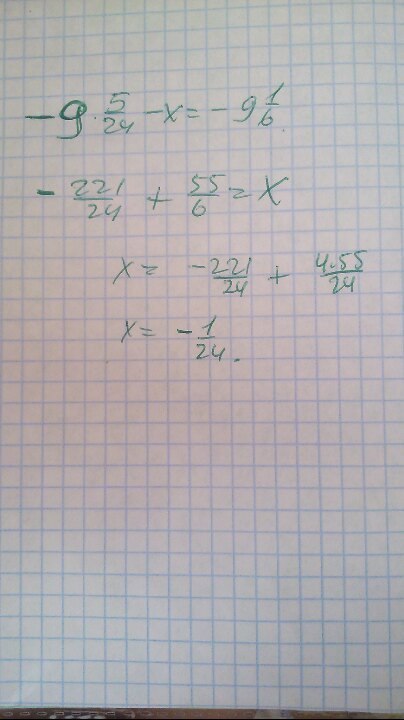 -9 5/24 - x = -9 1/6
- 221/24 + 55/6 = x
x = -221/24 + 4·55/24
x = - 1/24.